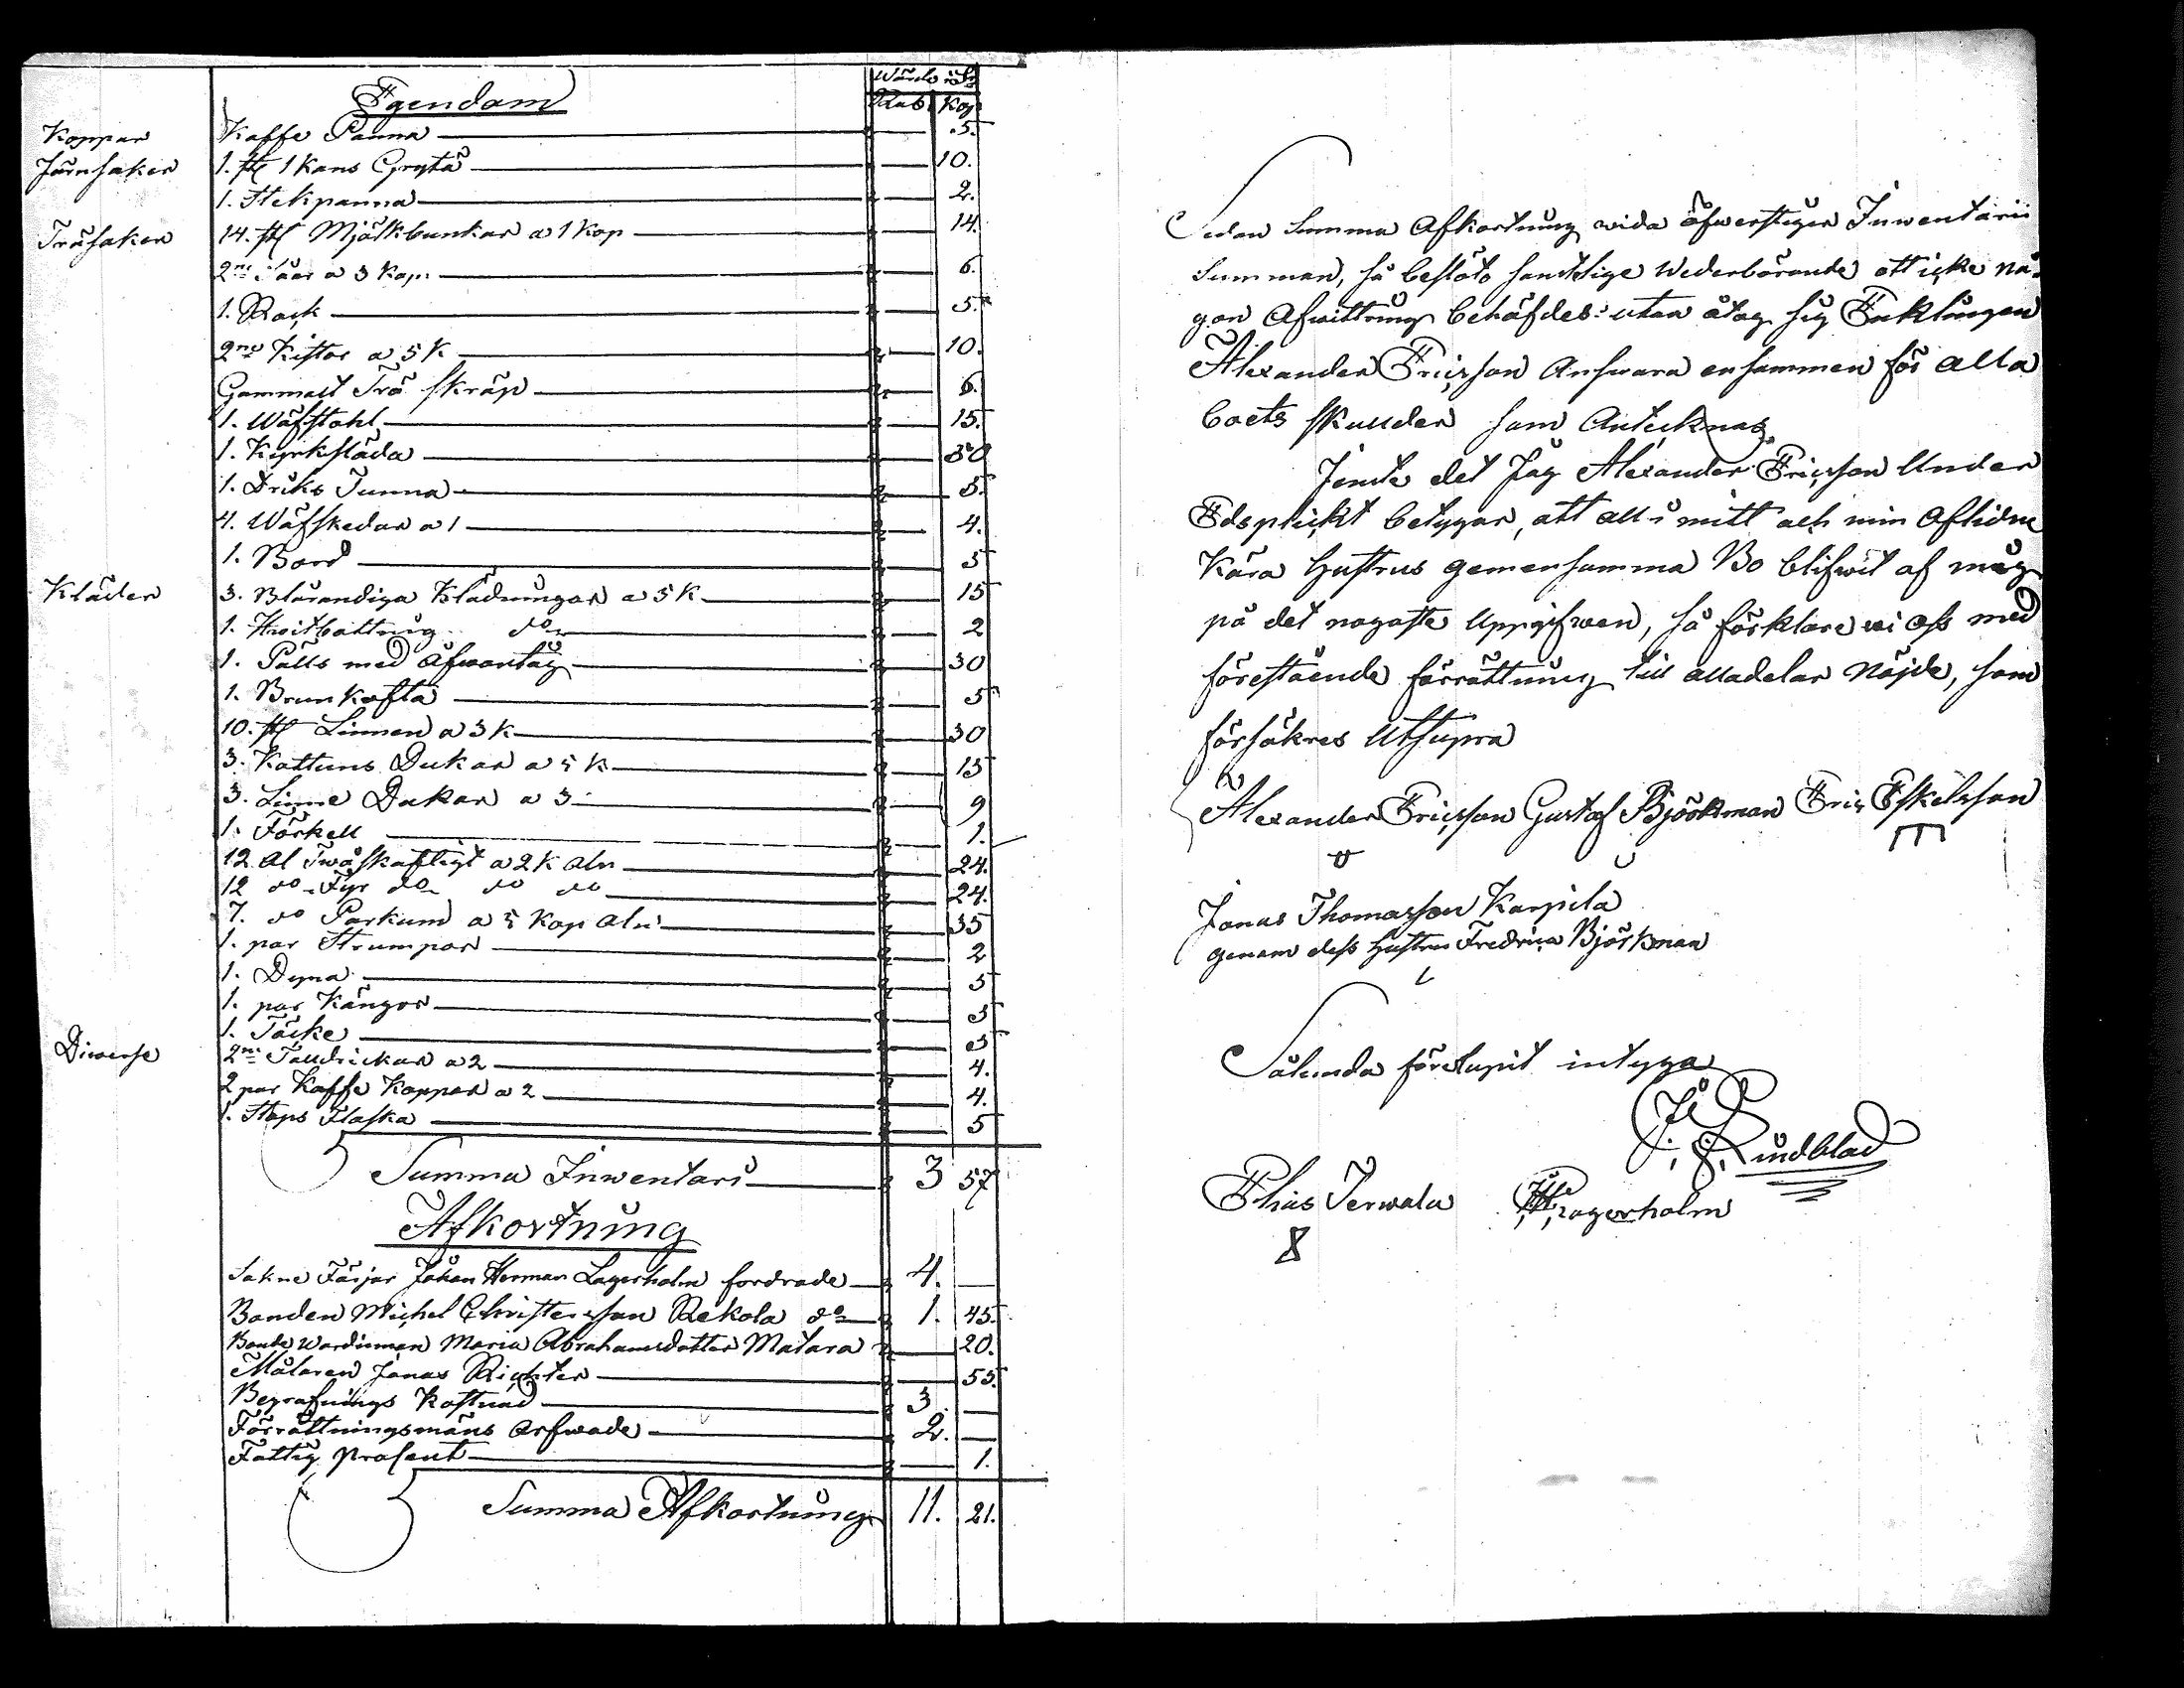 Egendam
Wärde i Sr
Rub. Kop.
Koppar Kaffe Panna 5.
Järnsaker 1. st 1 Kans Gryta 10.
1. Stekpanna 2.
Träsaker 14. st Mjölkbunkar a 1 Kop 14.
2ne Såar a 3 Kop. 6.
1. Rock 5.
2ne Kistor a 5 K 10.
Gammalt Trä skräp 6.
1. Wäfstohl 15.
1. Kyrksläda 30
1. Driks Tunna 5.
4. Wäfskedar a 1 4.
1. Bord 5
Kläder 3. Blårandiga Klädningar a 5 K 15
1. Hvitbottnig do 2
1. Päls med Öfwantÿg 30
1. Brun Kofta 5
10. st Linnen a 3 K 30
3. Kattuns Dukar a 5 K 15
3. Linne Dukar a 3 9
1. Förkell 1.
12 Al Twåskaftigt a 2 K Aln 24.
12 do Fyr do do do 24.
7. do Parkum a 5 Kop Aln 35
1. par Strumpor 2
1. Dyna 5
1. par Kängor 5
1. Täcke 5
Diverse 2ne Talldrickar a 2 4.
2 par Kaffe Koppar a 2 4.
1. Stops Flaska 5
Summa Inwentari 3 57
Afkortning
Sakne Färjar Johan Herman Lagerholm fordrade 4. —
Bonden Michel Christersson Rekola do 1. 45.
Bonde Wärdinnan Maria Abrahamsdotter Matara 20.
Målaren Jonas Richter 55.
Begrafnings Kostnad 3. —
Förrättningsmäns Arfwade 2. —
Fattig prosent 1.
Summa Afkortning 11. 21.
Sedan Summa Afkortning wida öfwerstiger Inwentarii
Summan, så beslöto samtelige Wederbörande att icke nå-
gon Afwittring behöfdes utan åtog sig Enklingen
Alexander Ericsson Answara ensammen för alla
boets skulder som Antecknas.
Jemte det Jag Alexander Ericsson Under
Edsplickt betygar, att allt i mitt och min Aflidne
Kära Hustrus gemensamma Bo blifwit af mig
på det nogaste Uppgifwen, så förklare wi oss med
förestående förrättning till alladelar Nöjde, som
försäkres Utsupra
Alexander Ericsson Gustaf Björkman Eric Eskelsson
Jonas Thomasson Karpila
genom dess Hustru Fredrica Björkman
Sålunda förelupit intyga
J. J. Lindblad
Elias Jerwala J. H. Lagerholm